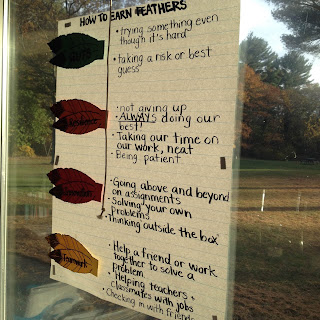 HOW TO EARN FEATHERS
• trying something even
though it's hard
• taking a risk or best
guess
• not giving up
• ALWAYS doing our
best!
• Taking our time on
our work, neat
• Being patient
• Going above and beyond
on assignments
• Solving your own
problems
• Thinking outside the box
• Help a friend or work
together to solve a
problem
• Helping teachers +
classmates with jobs
• Checking in with friends
Teamwork